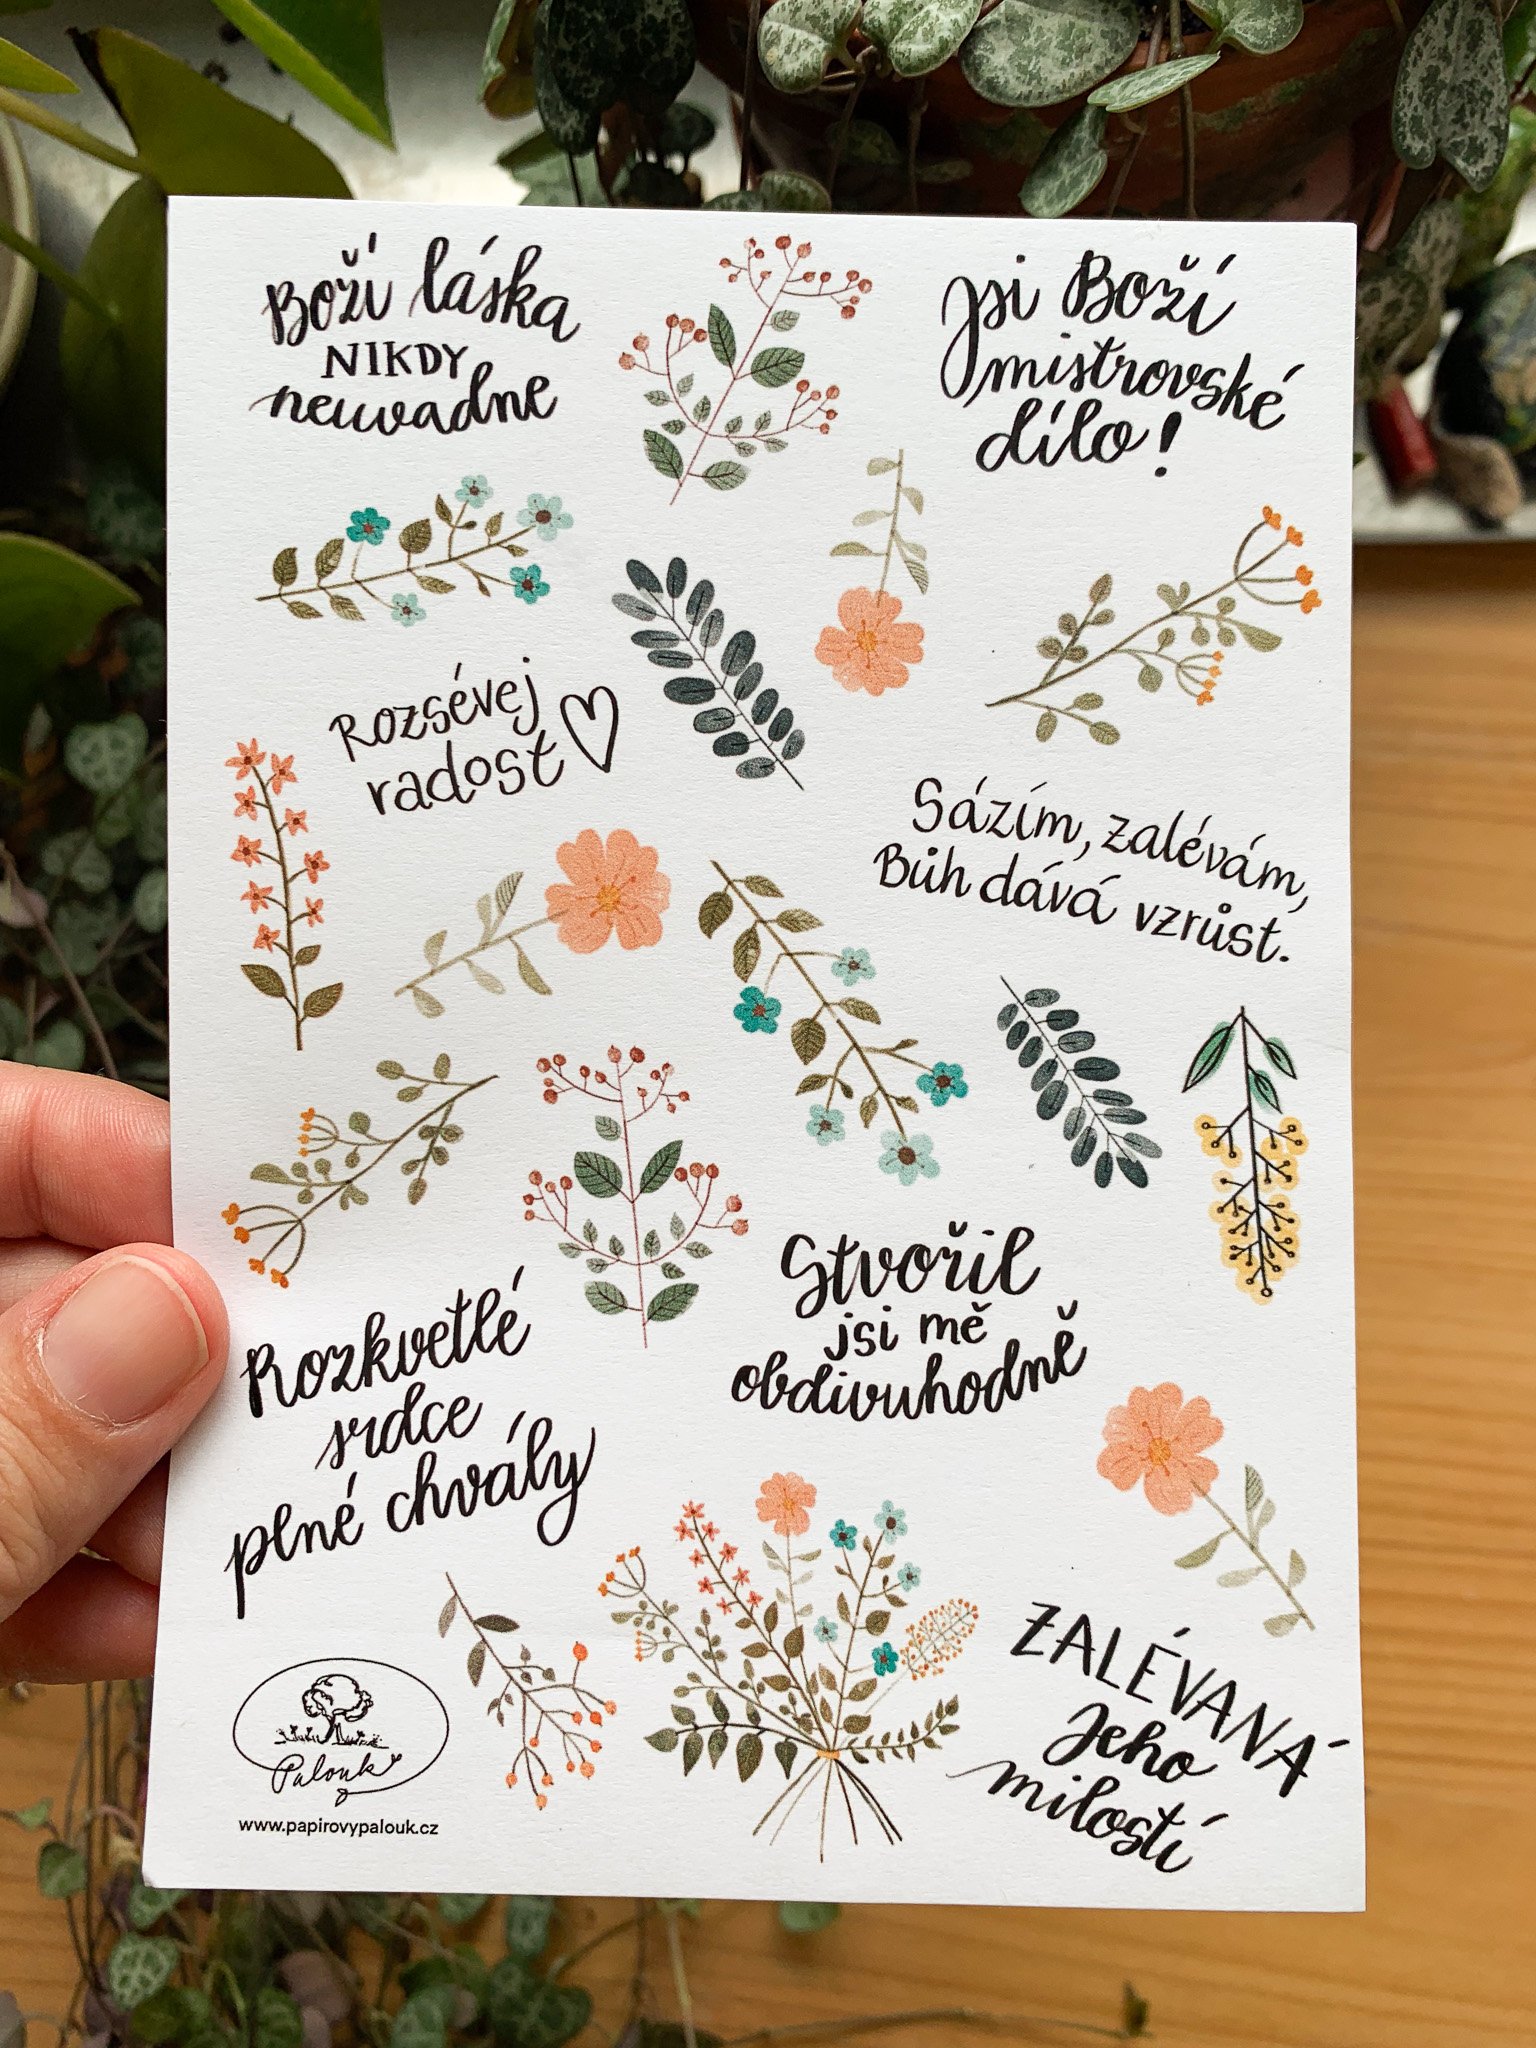 Boží láska
NIKDY
neuvadne
Jsi Boží
mistrovské
dílo!
Rozsévej
radost
Sázím, zalévám,
Bůh dává vzrůst.
Stvořil
jsi mě
obdivuhodně
Rozkvetlé
srdce
plné chvály
ZALÉVANÁ
Jeho
milostí
Palouk
www.papirovypalouk.cz